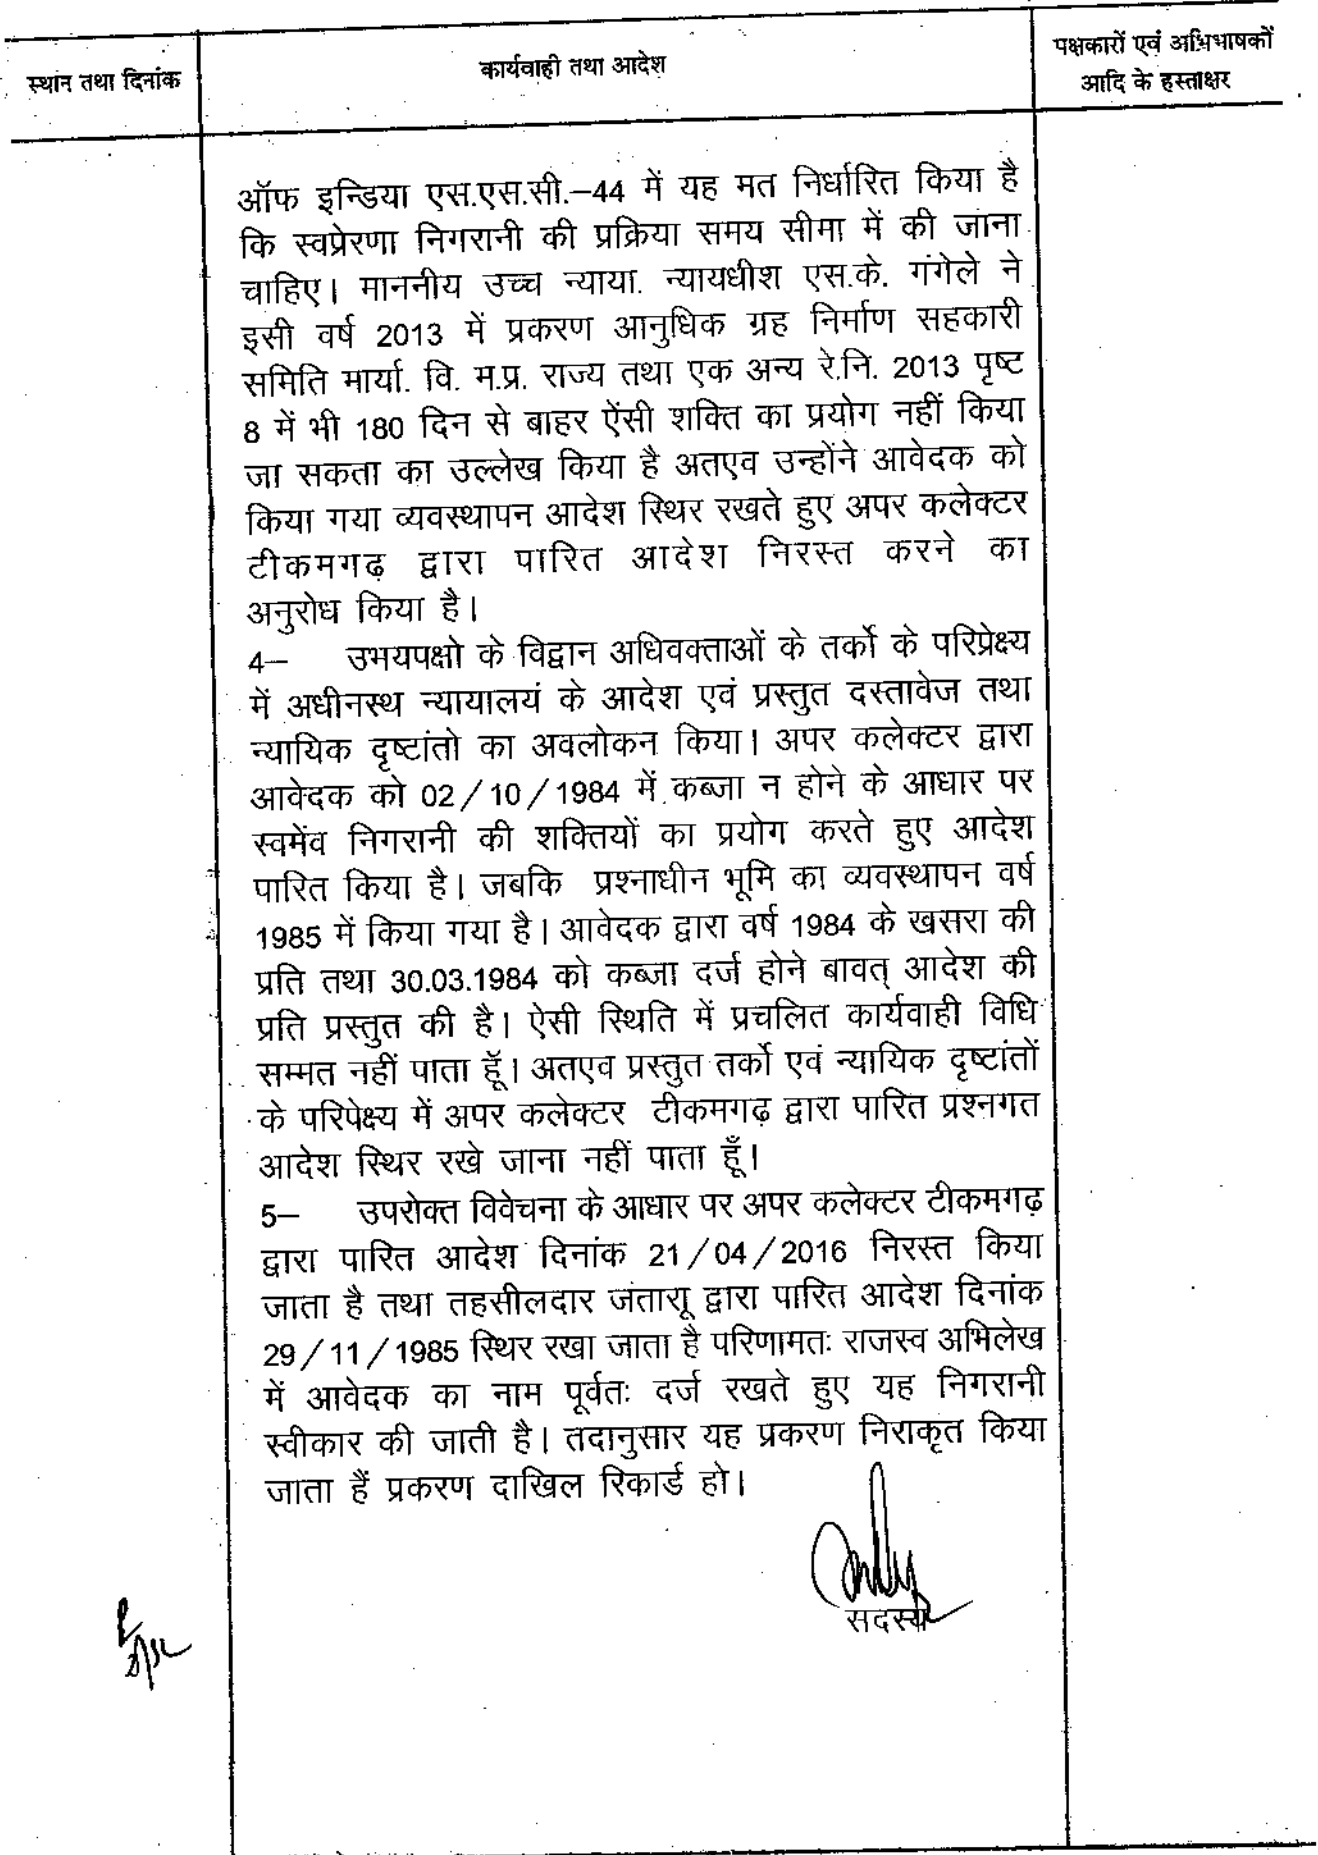 स्थान तथा दिनांक
कार्यवाही तथा आदेश
पक्षकारों एवं अभिभाषकों
आदि के हस्ताक्षर
ऑफ इन्डिया एस.एस.सी.–44 में यह मत निर्धारित किया है
कि स्वप्रेरणा निगरानी की प्रक्रिया समय सीमा में की जाना
चाहिए। माननीय उच्च न्याया. न्यायधीश एस.के. गंगेले ने
इसी वर्ष 2013 में प्रकरण आनुधिक ग्रह निर्माण सहकारी
समिति मार्या. वि. म.प्र. राज्य तथा एक अन्य रे.नि. 2013 पृष्ट
8 में भी 180 दिन से बाहर ऐंसी शक्ति का प्रयोग नहीं किया
जा सकता का उल्लेख किया है अतएव उन्होंने आवेदक को
किया गया व्यवस्थापन आदेश स्थिर रखते हुए अपर कलेक्टर
टीकमगढ़ द्वारा पारित आदेश निरस्त करने का
अनुरोध किया है।
4– उभयपक्षो के विद्वान अधिवक्ताओं के तर्को के परिप्रेक्ष्य
में अधीनस्थ न्यायालयं के आदेश एवं प्रस्तुत दस्तावेज तथा
न्यायिक दृष्टांतो का अवलोकन किया। अपर कलेक्टर द्वारा
आवेदक को 02/10/1984 में कब्जा न होने के आधार पर
स्वमेंव निगरानी की शक्तियों का प्रयोग करते हुए आदेश
पारित किया है। जबकि प्रश्नाधीन भूमि का व्यवस्थापन वर्ष
1985 में किया गया है। आवेदक द्वारा वर्ष 1984 के खसरा की
प्रति तथा 30.03.1984 को कब्जा दर्ज होने बावत् आदेश की
प्रति प्रस्तुत की है। ऐसी स्थिति में प्रचलित कार्यवाही विधि
सम्मत नहीं पाता हूॅ। अतएव प्रस्तुत तर्को एवं न्यायिक दृष्टांतों
के परिपेक्ष्य में अपर कलेक्टर टीकमगढ़ द्वारा पारित प्रश्नगत
आदेश स्थिर रखे जाना नहीं पाता हूँ।
5– उपरोक्त विवेचना के आधार पर अपर कलेक्टर टीकमगढ़
द्वारा पारित आदेश दिनांक 21/04/2016 निरस्त किया
जाता है तथा तहसीलदार जतारू द्वारा पारित आदेश दिनांक
29/11/1985 स्थिर रखा जाता है परिणामतः राजस्व अभिलेख
में आवेदक का नाम पूर्वतः दर्ज रखते हुए यह निगरानी
स्वीकार की जाती है। तदानुसार यह प्रकरण निराकृत किया
जाता हैं प्रकरण दाखिल रिकार्ड हो।
सदस्य